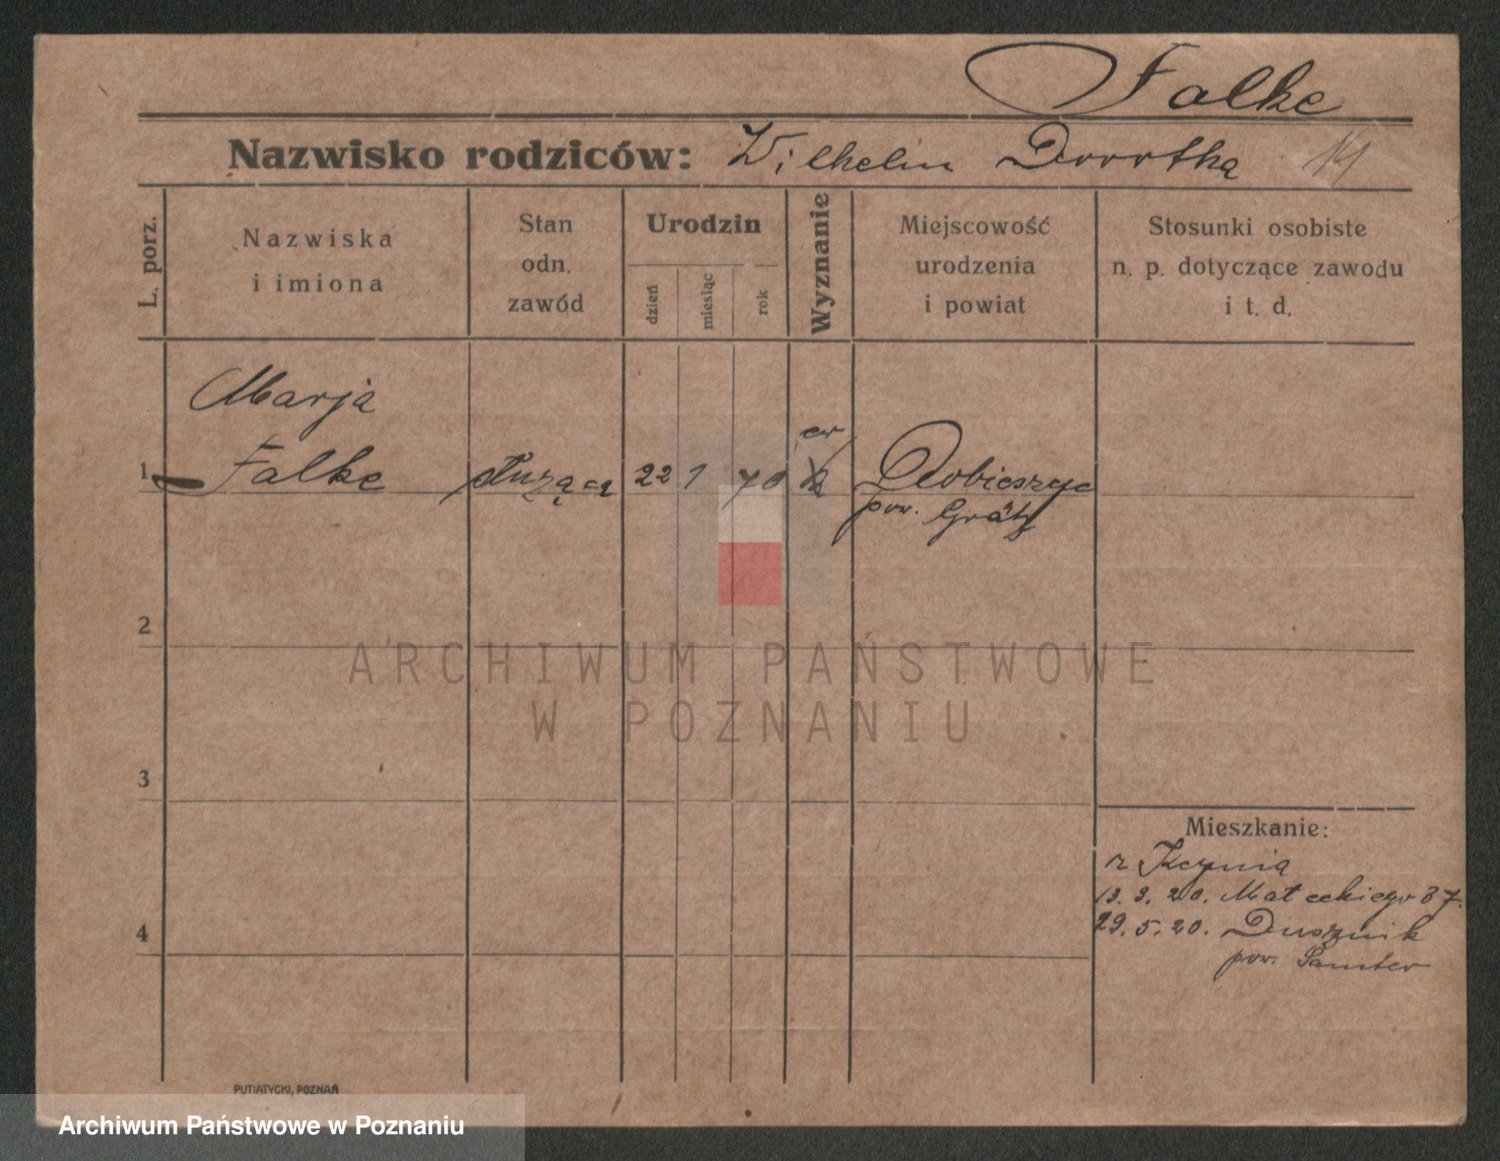 Falke
Nazwisko rodziców: Wilhelm Dorotha
L. porz.
Nazwiska
i imiona
Stan
odn.
zawód
Urodzin
dzień
miesiąc
rok
Wyznanie
Miejscowość
urodzenia
i powiat
Stosunki osobiste
n. p. dotyczące zawodu
i t. d.
Marja
ew
1 Falke służąca 22 1 70 k Dobieszyc
pow. Grätz
2
ARCHIWUM PAŃSTWOWE
W POZNANIU
3
Mieszkanie:
z Kcynia
13. 3. 20. Małeckiego 37.
4
29. 5. 20. Dusznik
pow. Samter
PUTIATYCKI, POZNAŃ
Archiwum Państwowe w Poznaniu